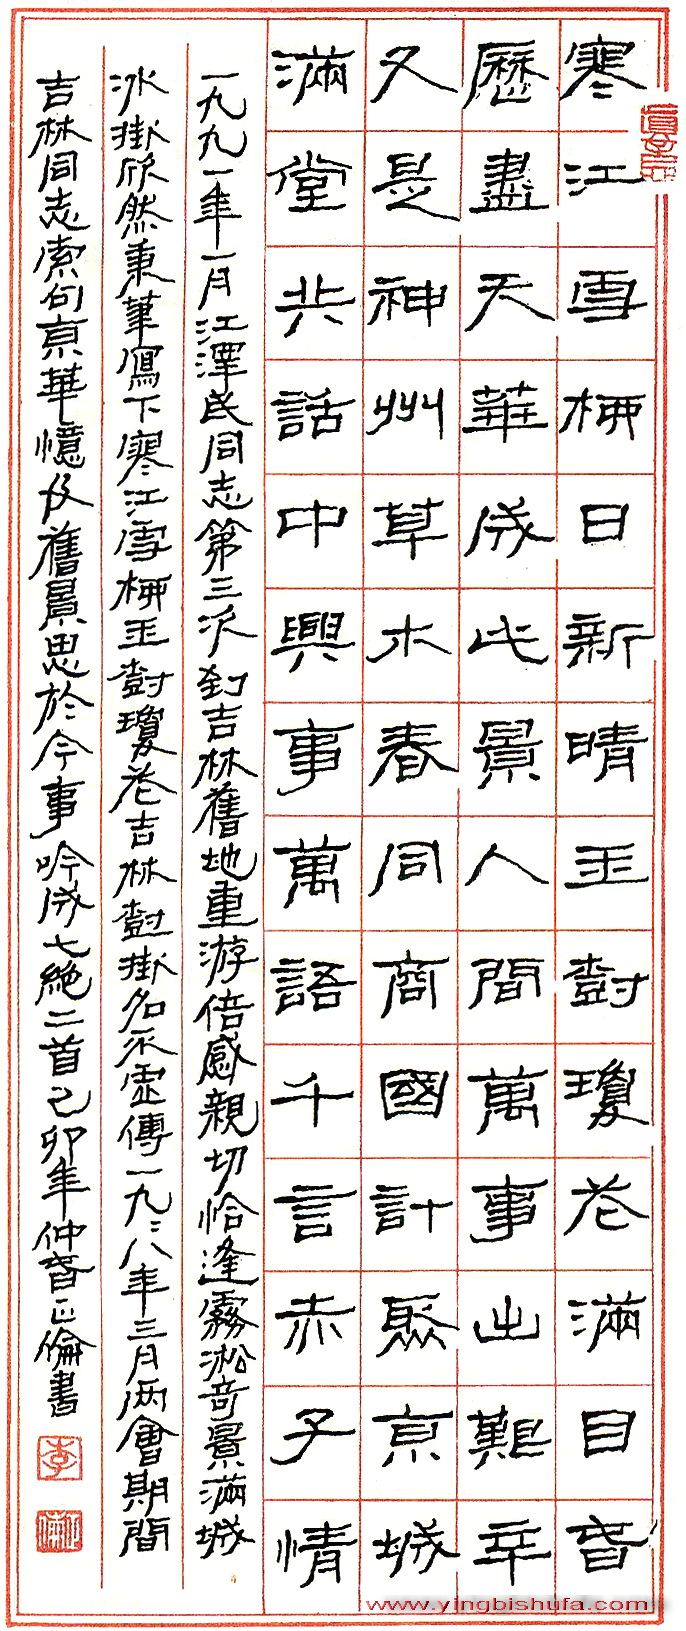 寒江雪柳日新晴玉樹瓊花滿目春
歷盡天華成此景人間萬事出艱辛
又是神州草木春同商國計聚京城
滿堂共話中興事萬語千言赤子情
一九九一年一月江澤民同志第三次到吉林舊地重游倍感親切恰逢霧淞奇景滿城
冰掛欣然秉筆寫下寒江雪柳玉樹瓊花吉林樹掛名不虛傳一九九八年三月兩會期間
吉林同志索句京華憶及舊景思於今事吟成七絕二首己卯年仲春正倫書
李
正倫
www.yingbishufa.com